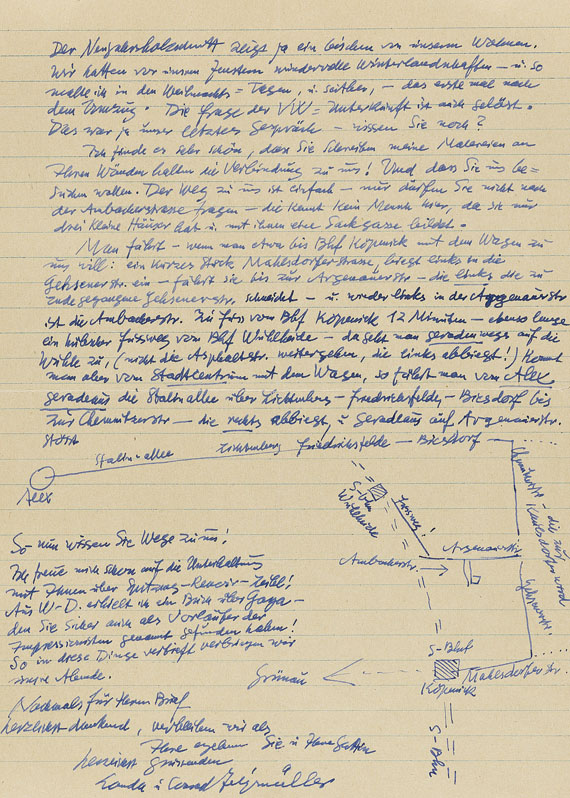 Der Neujahrsholzschnitt zeigt ja ein bischen von unserem Wohnen.
Wir hatten vor unsern Fenstern wundervolle Winterlandschaften – u. so
malte ich in den Weihnachts = Tagen, u. seither, – das erste mal nach
dem Umzug. Die Frage der VW = Unterkunft ist auch gelöst.
Das war ja unser letztes Gespräch – wissen Sie noch?
Ich finde es sehr schön, dass Sie schreiben meine Malereien an
Ihren Wänden halten die Verbindung zu uns! Und dass Sie uns be=
suchen wollen. Der Weg zu uns ist einfach – nur dürfen Sie nicht nach
der Ambacherstrasse fragen – die kennt kein Mensch hier, da sie nur
drei kleine Häuser hat u. mit ihnen eine Sackgasse bildet.
Man fährt – wenn man etwa bis Bhf Köpenick mit dem Wagen zu
uns will: ein kurzes Stück Mahlsdorferstrasse, biegt links in die
Gehsenerstr. ein – fährt sie bis zur Argenauerstr – die links die zu
Ende gegangene Gehsenerstr. schneidet – u. wieder links in der Argenauerstr
ist die Ambacherstr. Zu fuss vom Bhf Köpenick 12 Minuten – ebenso lange
ein hübscher Fussweg vom Bhf Wuhlheide – da geht man geradenwegs auf die
Wuhle zu, (nicht die Asphaltstr. weitergehen, die links abbiegt!) Kommt
man aber vom Stadtcentrum mit dem Wagen, so fährt man vom Alex
geradeaus die Stalinallee über Lichtenberg – Friedrichsfelde – Biesdorf bis
zur Chemnitzerstr – die rechts abbiegt, u geradeaus auf Argenauerstr.
stösst
Stalin-allee Lichtenberg Friedrichsfelde – Biesdorf
Alex
S-Bhn
Wuhlheide
Fussweg!
Argenauerstr
Ambacherstr.
Chemnitzerstr. die zur
Kaulsdorfer wird
Gehsenerstr.
S-Bhf
Köpenick
Mahlsdorferstr.
Grünau
S-Bhn
So – nun wissen Sie Wege zu uns!
Ich freue mich schon auf die Unterhaltung
mit Ihnen über
Aus W-D. erhielt ich ein Buch über Goya –
den Sie sicher auch als Vorläufer der
Impressionisten genannt gefunden haben!
So in diese Dinge vertieft verbringen wir
unsere Abende.
Nochmals für Ihren Brief
herzlichst dankend, verbleiben wir als
Ihre ergebenen Sie u Ihre Gattin
herzlichst Grüssenden
u Conrad Felixmüller